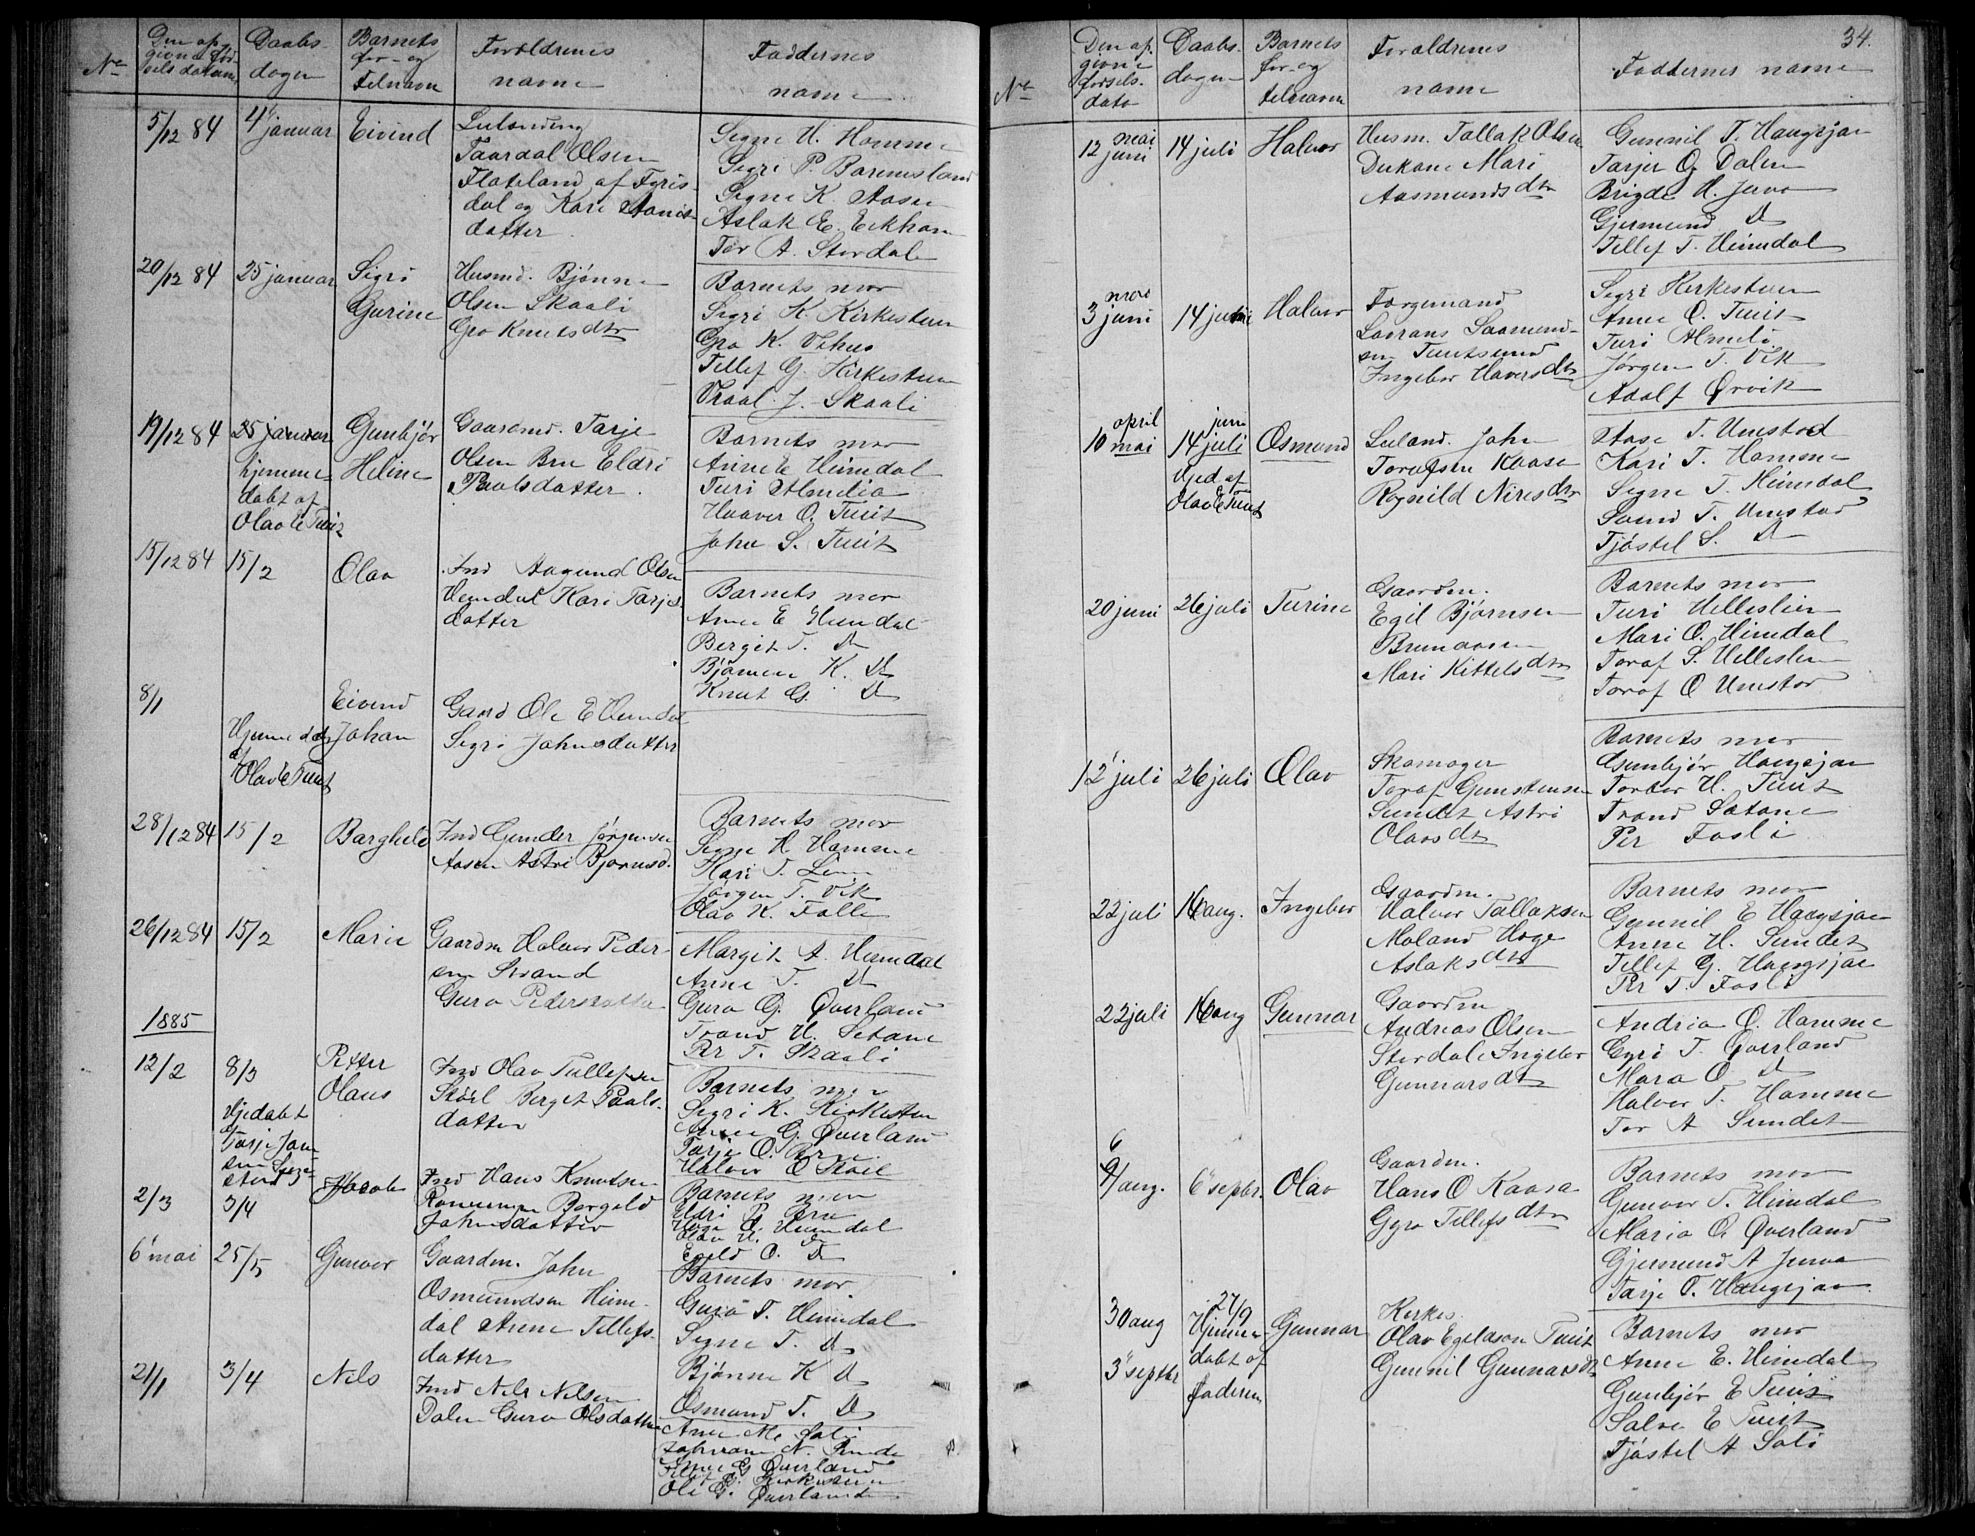 No
Den op
givne fød-
sels datum
Daabs-
dagen
Barnets
for- og
tilnavn
Foraldrenes
navne
Faddernes
navne
5/12 84
4 januar
Eivind
Taardal Olsen
Flateland af Fyris
dal og Kari
datter
Signe H. Homme
Sigri P. Barmesland
Signe K. Aasen
Aslak E. Eikhom
Tor A. Stordal
20/12 84
25 januar
Sigri
Gurine
Husmd. Bjønne
Olsen Skaali
Gro Knutsdtr
Barnets mor
Sigri K. Kirkesteen
Gro K. Vehus
Tellef G. Kirkesteen
Vraal J. Skaali
19/12 84
25 januar
hjemme-
døbt af
Olav E Tveit
Gunbjør
Heline
Gaardmd. Tarje
Olsen Bru Eldri
Paalsdatter.
Barnets mor
Anne E Heimdal
Turi
Haaver O. Tveit
John S. Tveit
15/12 84
15/2
Olav
Ind Aagund Olsen
Heimdal Kari Tarjes-
datter
Barnets mor
Anne E Heimdal
Bergit T. D
Bjønne K. D
Knut G. D
8/1
Hjemmedøbt
af
Olav E Tveit
Eivind
Johan
Gaard Ole E Heimdal
Sigri Johnsdatter
28/12 84
15/2
Barghild
Ind Gunder Jørgensen
Aasen Astri Bjørnsd.
Barnets mor
Signe H. Homme
Kari T. Lien
Jørgen T. Vik
Olav K. Falle
26/12 84
15/2
Marie
Gaardm Halvor Peder-
sen Strand
Guro Pedersdatter
Margit A. Heimdal
Anne T. D
Guro G. Øverland
Trond H. Setane
Per T. Skaali
1885
12/2
8/3
Hjedøbt
af
Tarje Jon
sen
Petter
Olaus
Ind Olav Tellefsen
Skoil Berget Paals-
datter
Barnets mor
Sigri K. Kirkesteen
Anne G. Øverland
Tarje O. Bru
Halvor O Skoil
2/3
3/4
Jacob
Ind Hans Knutsen
Bergild
Johnsdatter
Barnets mor
Eldri P. Bru
Hæge O. Heimdal
Olav H. D
Egeld O. D
6 mai
25/5
Gunvor
Gaardm. John
Osmundsen Heim-
dal Anne Tellefs-
datter
Barnets mor
Guro T. Heimdal
Signe T. D
Bjønne K D
Osmund T. D
21/1
3/4
Nils
Ind Nils Nilsen
Dalen Guro Olsdatter
Anne M.
N. Rinde
Anne G Øverland
Tellef G. Kirkesteen
Ole G. Øverland
34.
No
Den op
givne
fødsels-
dato
Daabs-
dagen
Barnets
for- og
tilnavn
Foraldrenes
navne
Faddernes navne
mai
12 juni
14 juli
Halvor
Husm. Tallak Olsen
Dukane Mari
Aasmundsdtr
Gunnil T. Haugsjaa
Tarjer O. Dalen
Brigde H. Juva
Gjermund D
Tellef T. Heimdal
mai
3 juni
14 juni
Halvor
Færgemand
Lavrans Saamund-
sen Tveitsund
Ingebor Haversdtr
Sigri Kirkesteen
Anne O. Tveit
Turi Almeli
Jørgen T. Vik
Adolf Ørvik
april
10 mai
juni
14 juli
Hjed af
Olav E Tveit
Osmund
Leiland. John
Torafsen Kaasa
Rognild Nirisdtr
Aase T. Umstod
Kari T. Homme
Signe T. Heimdal
Svend T. Umstod
Tjøstel S. D
20 juni
26 juli
Turine
Gaardm.
Egil Bjørnsen
Brunaasen
Mari Kittelsdtr
Barnets mor
Turi Hellislien
Mari O. Heimdal
Toraf S. Hellislien
Toraf O Umstod
12 juli
26 juli
Olav
Skomager
Toraf Gunstensen
Sundet Astri
Olavsdtr
Barnets mor
Gunbjør Haugsjaa
Torbor H. Tveit
Trond Setane
Per Fosli
22 juli
16 aug.
Ingebor
Gaardm.
Halvor Tallaksen
Moland Hæge
Aslaksdtr
Barnets mor
Gunnil E Haugsjaa
Anne H. Sundet
Tellef G. Haugsjaa
Per T. Fosli
22 juli
16 aug
Gunnar
Gaardm
Andreas Olsen
Stordal Ingebor
Gunnarsdtr
Andrea O. Homme
Gyri T. Øverland
Mara O D
Halvor T. Homme
Tor A Sundet
6
9/aug.
6 septbr.
Olav
Gaardm.
Hans O Kaasa
Gyro Tellefsdtr
Barnets mor
Gunvor T. Heimdal
Maria O. Øverland
Gjermund A Juva
Tarje O. Haugsjaa
30 aug
3 septbr
27/9
Hjemme-
døbt af
faderen
Gunnar
Kirkes.
Olav Egeldson Tveit
Gunnil Gunnarsdtr
Barnets mor
Anne E. Heimdal
Gunbjør E Tveit
Salve E Tveit
Tjøstel A Soli